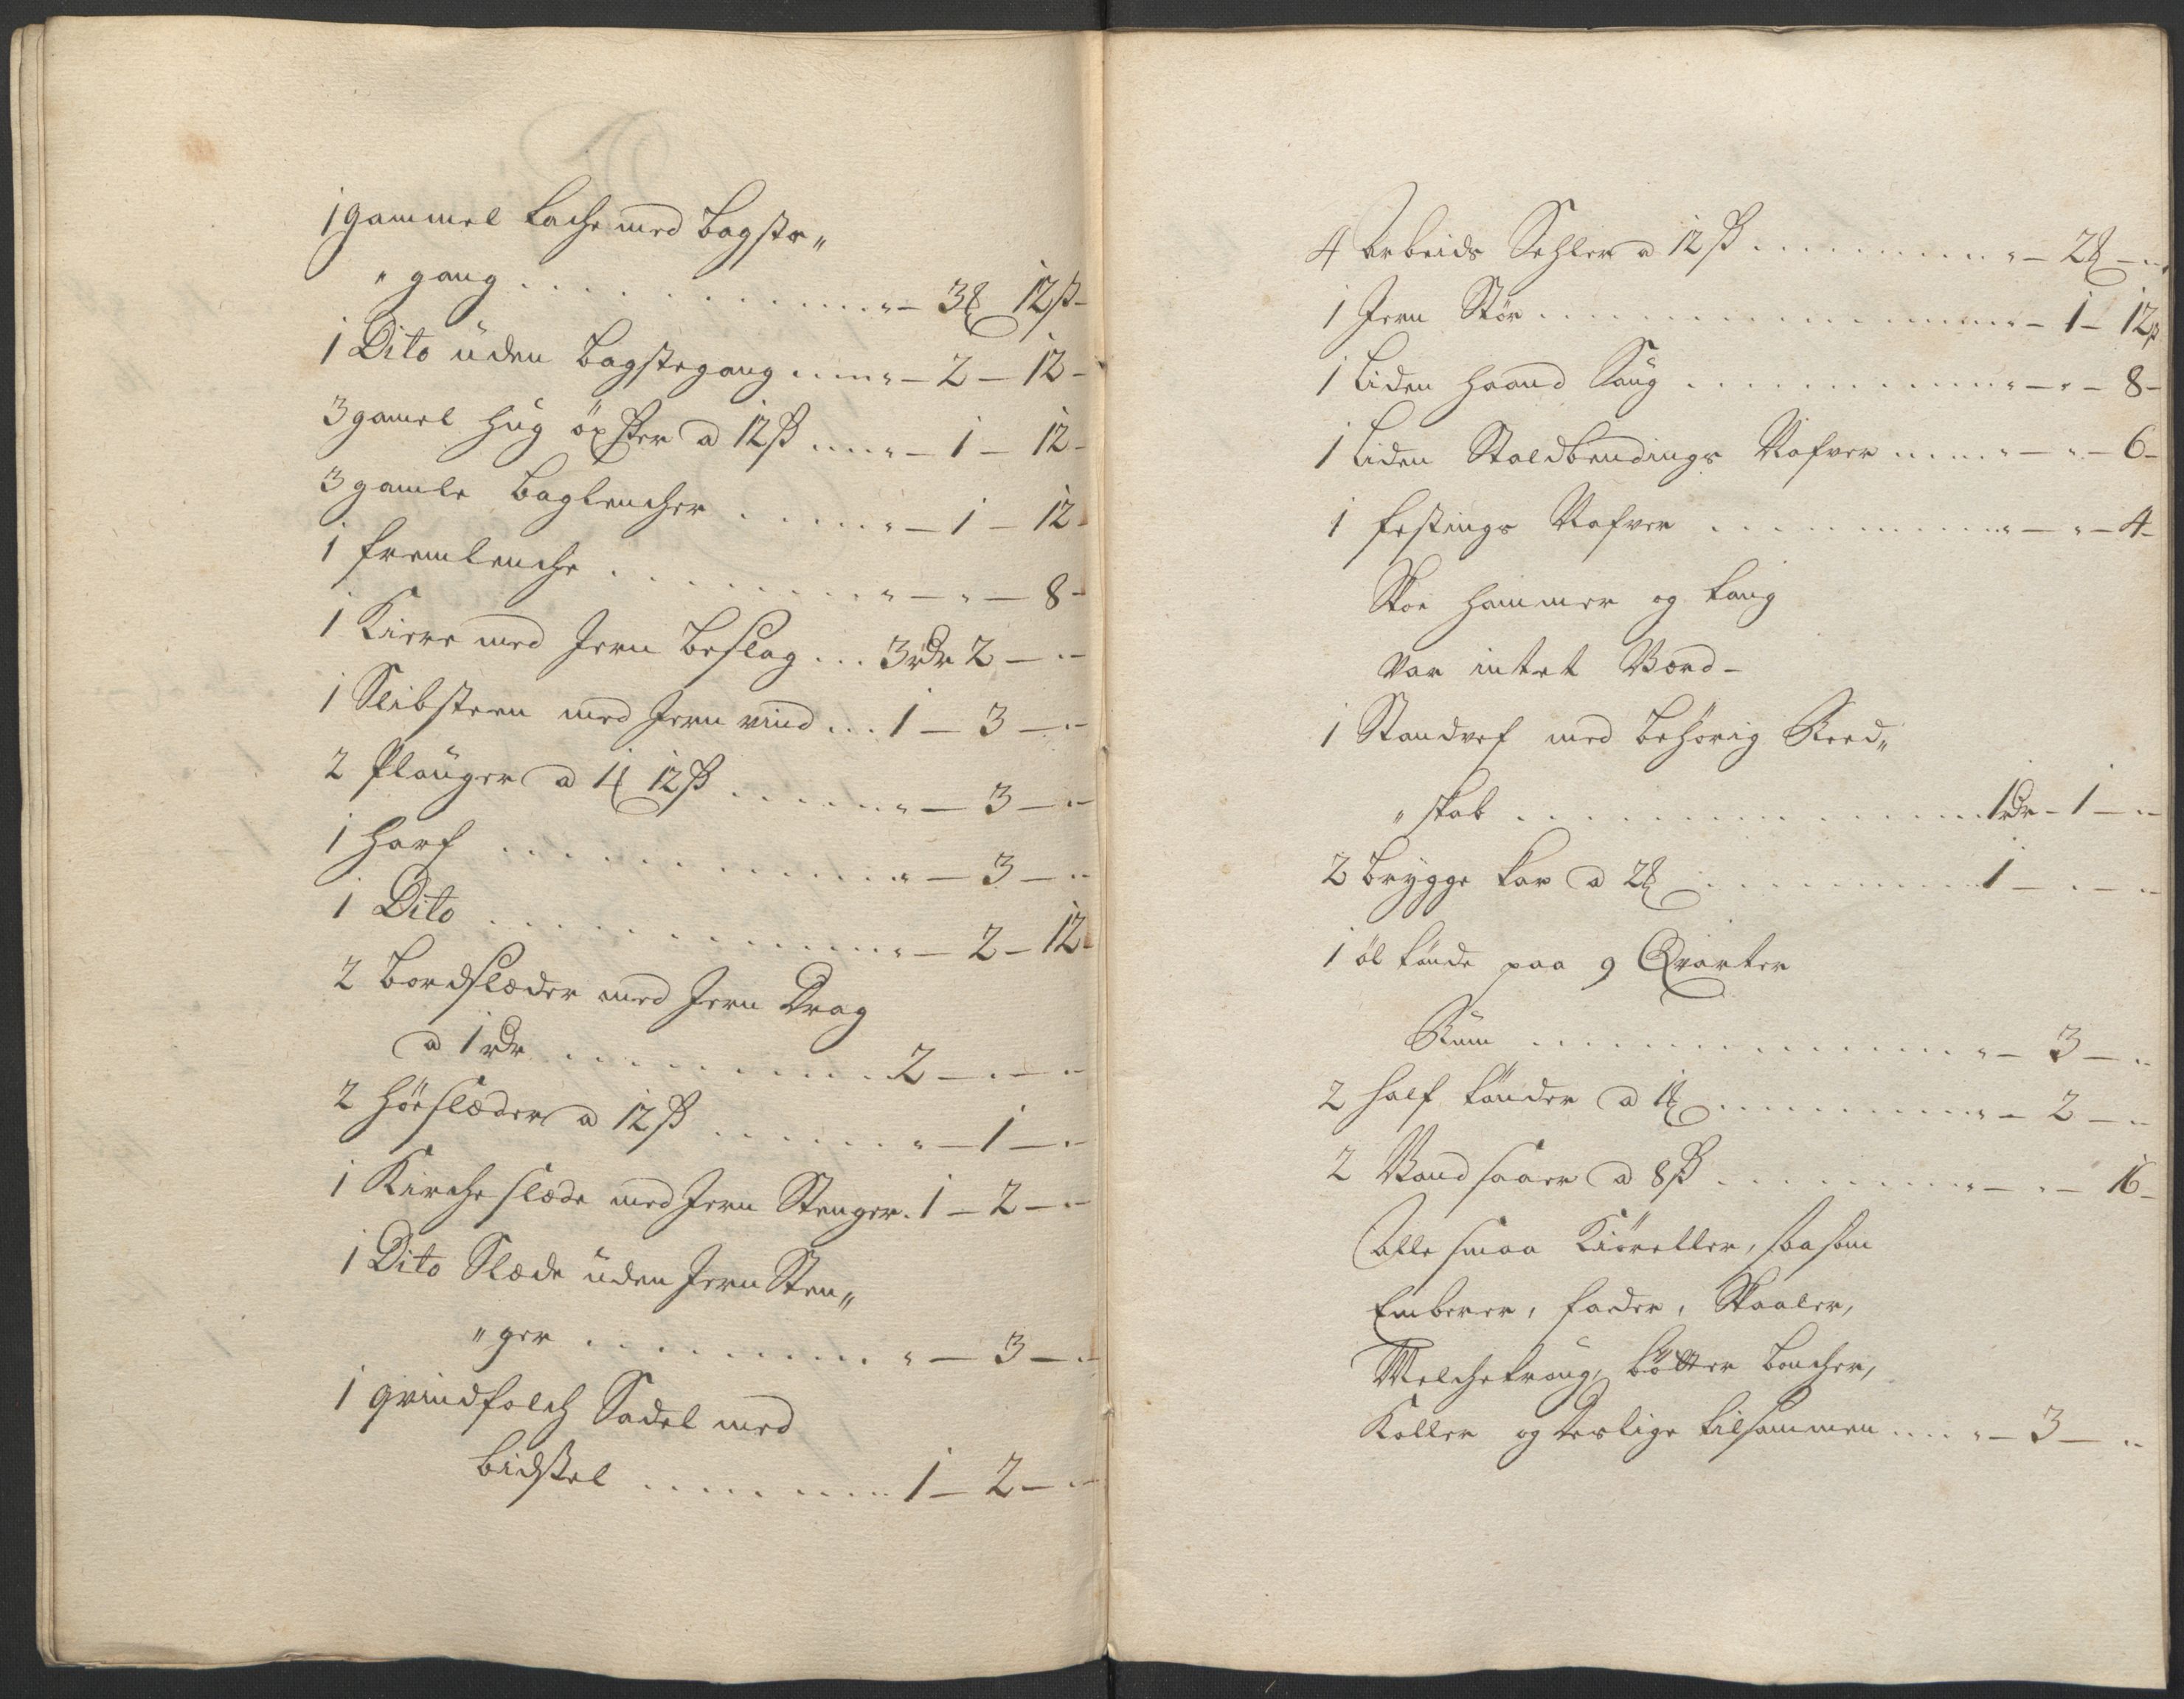 1 gammel Kache med Bagste„
„gang ............ „ — 3 ₰ 12 ß —
1 Dito uden Bagstegang .... „ — 2 — 12 —
3 gamel hug öxster a 12 ß .... „ — 1 — 12 —
3 gamle Baglencher ...... „ — 1 — 12 —
1 fremlenche ........ „ — „ — 8 —
1 Kierre med Jern Beslag ... 3 rdr 2 — „ —
1 Slibsteen med Jern vind ... 1 — 3 — „ —
2 Plouger a 1 ₰ 12 ß ...... „ — 3 — „ —
1 Harf ............ „ — 3 — „ —
1 Dito ............ „ — 2 — 12 —
2 Bordslæder med Jern Drag
a 1 rdr .......... 2 — „ — „ —
2 Höeslæder a 12 ß ....... „ — 1 — „ —
1 Kirche slæde med Jern Stenger . 1 — 2 — „ —
1 Dito Slæde uden Jern Sten„
„ger ......... „ — 3 — „ —
1 qvindfolch Sadel med
bidssel ......... 1 — 2 — „ —
4 Arbeids Sehler a 12 ß .......... „ — 2 ₰ — „
1 Jern Stör ............... „ — 1 — 12 ß
1 Liden haand Saug ............ „ — „ — 8 —
1 Liden Staldbendings Nafver ..... „ — „ — 6 —
1 festings Nafver ........... „ — „ — 4 —
Skoe hammer og tang
var intet Værd —
1 Standvef med behörig Reed„
„skab ................ 1 rdr — 1 — „ —
2 brygge kar a 2 ₰ .......... 1 — „ — „
1 öl tönde paa 9 Qvarter
Rum ............... „ — 3 — „
2 half tönder a 1 ₰ .......... „ — 2 — „
2 Vand saaer a 8 ß .......... „ — „ — 16 —
Alle smaa Kiöreller, saa som
Emberer, fader, Skaaler,
Melchetraug, bötter bencher,
Koller og deslige tilsammen .... „ — 3 — „